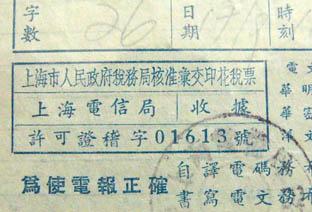 字數 26 日期 時刻
上海市人民政府稅務局核准彙交印花稅票
上海電信局 收據
許可證稽字01613號
電文
華明
華密
洋文
自譯電碼務
書寫電文務
為使電報正確